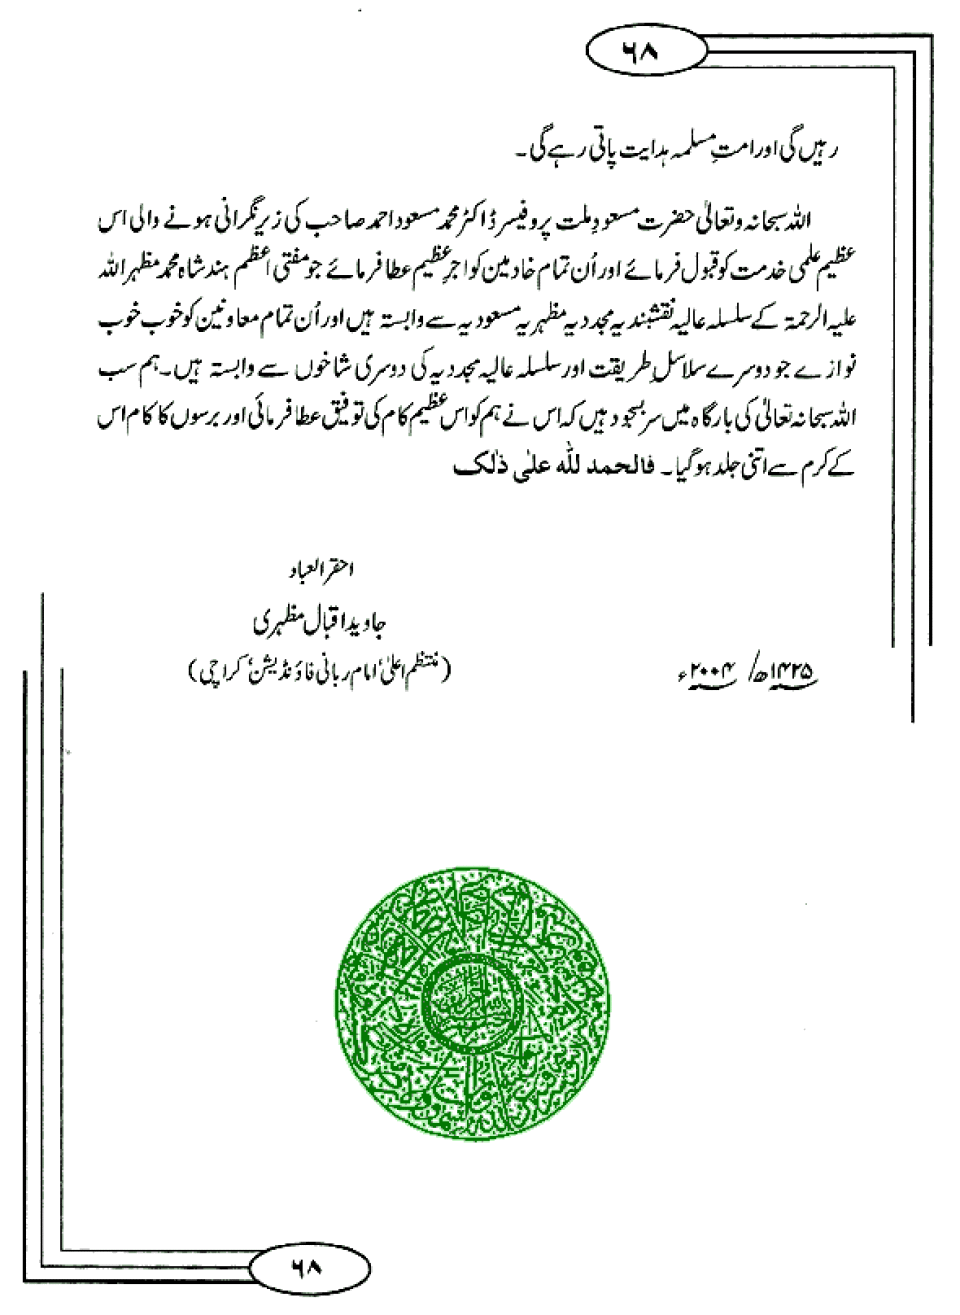 ۶۸
رہیں گی اور امتِ مسلمہ ہدایت پاتی رہے گی۔
اللہ سبحانہ وتعالیٰ حضرت مسعودِ ملت پروفیسر ڈاکٹر محمد مسعود احمد صاحب کی زیرِ نگرانی ہونے والی اس
عظیم علمی خدمت کو قبول فرمائے اور اُن تمام خادمین کو اجرِ عظیم عطا فرمائے جو مفتی اعظم ہند شاہ محمد مظہر اللہ
علیہ الرحمۃ کے سلسلہ عالیہ نقشبندیہ مجددیہ مظہریہ مسعودیہ سے وابستہ ہیں اور اُن تمام معاونین کو خوب خوب
نوازے جو دوسرے سلاسلِ طریقت اور سلسلہ عالیہ مجددیہ کی دوسری شاخوں سے وابستہ ہیں۔ ہم سب
اللہ سبحانہ تعالیٰ کی بارگاہ میں سر بسجود ہیں کہ اس نے ہم کو اس عظیم کام کی توفیق عطا فرمائی اور برسوں کا کام اس
کے کرم سے اتنی جلد ہو گیا۔ فالحمد للّٰہ علیٰ ذٰلک
احقر العباد
جاوید اقبال مظہری
(منتظم اعلیٰ، امام ربانی فاؤنڈیشن، کراچی)
۱۴۲۵ھ/ ۲۰۰۴ء
۶۸